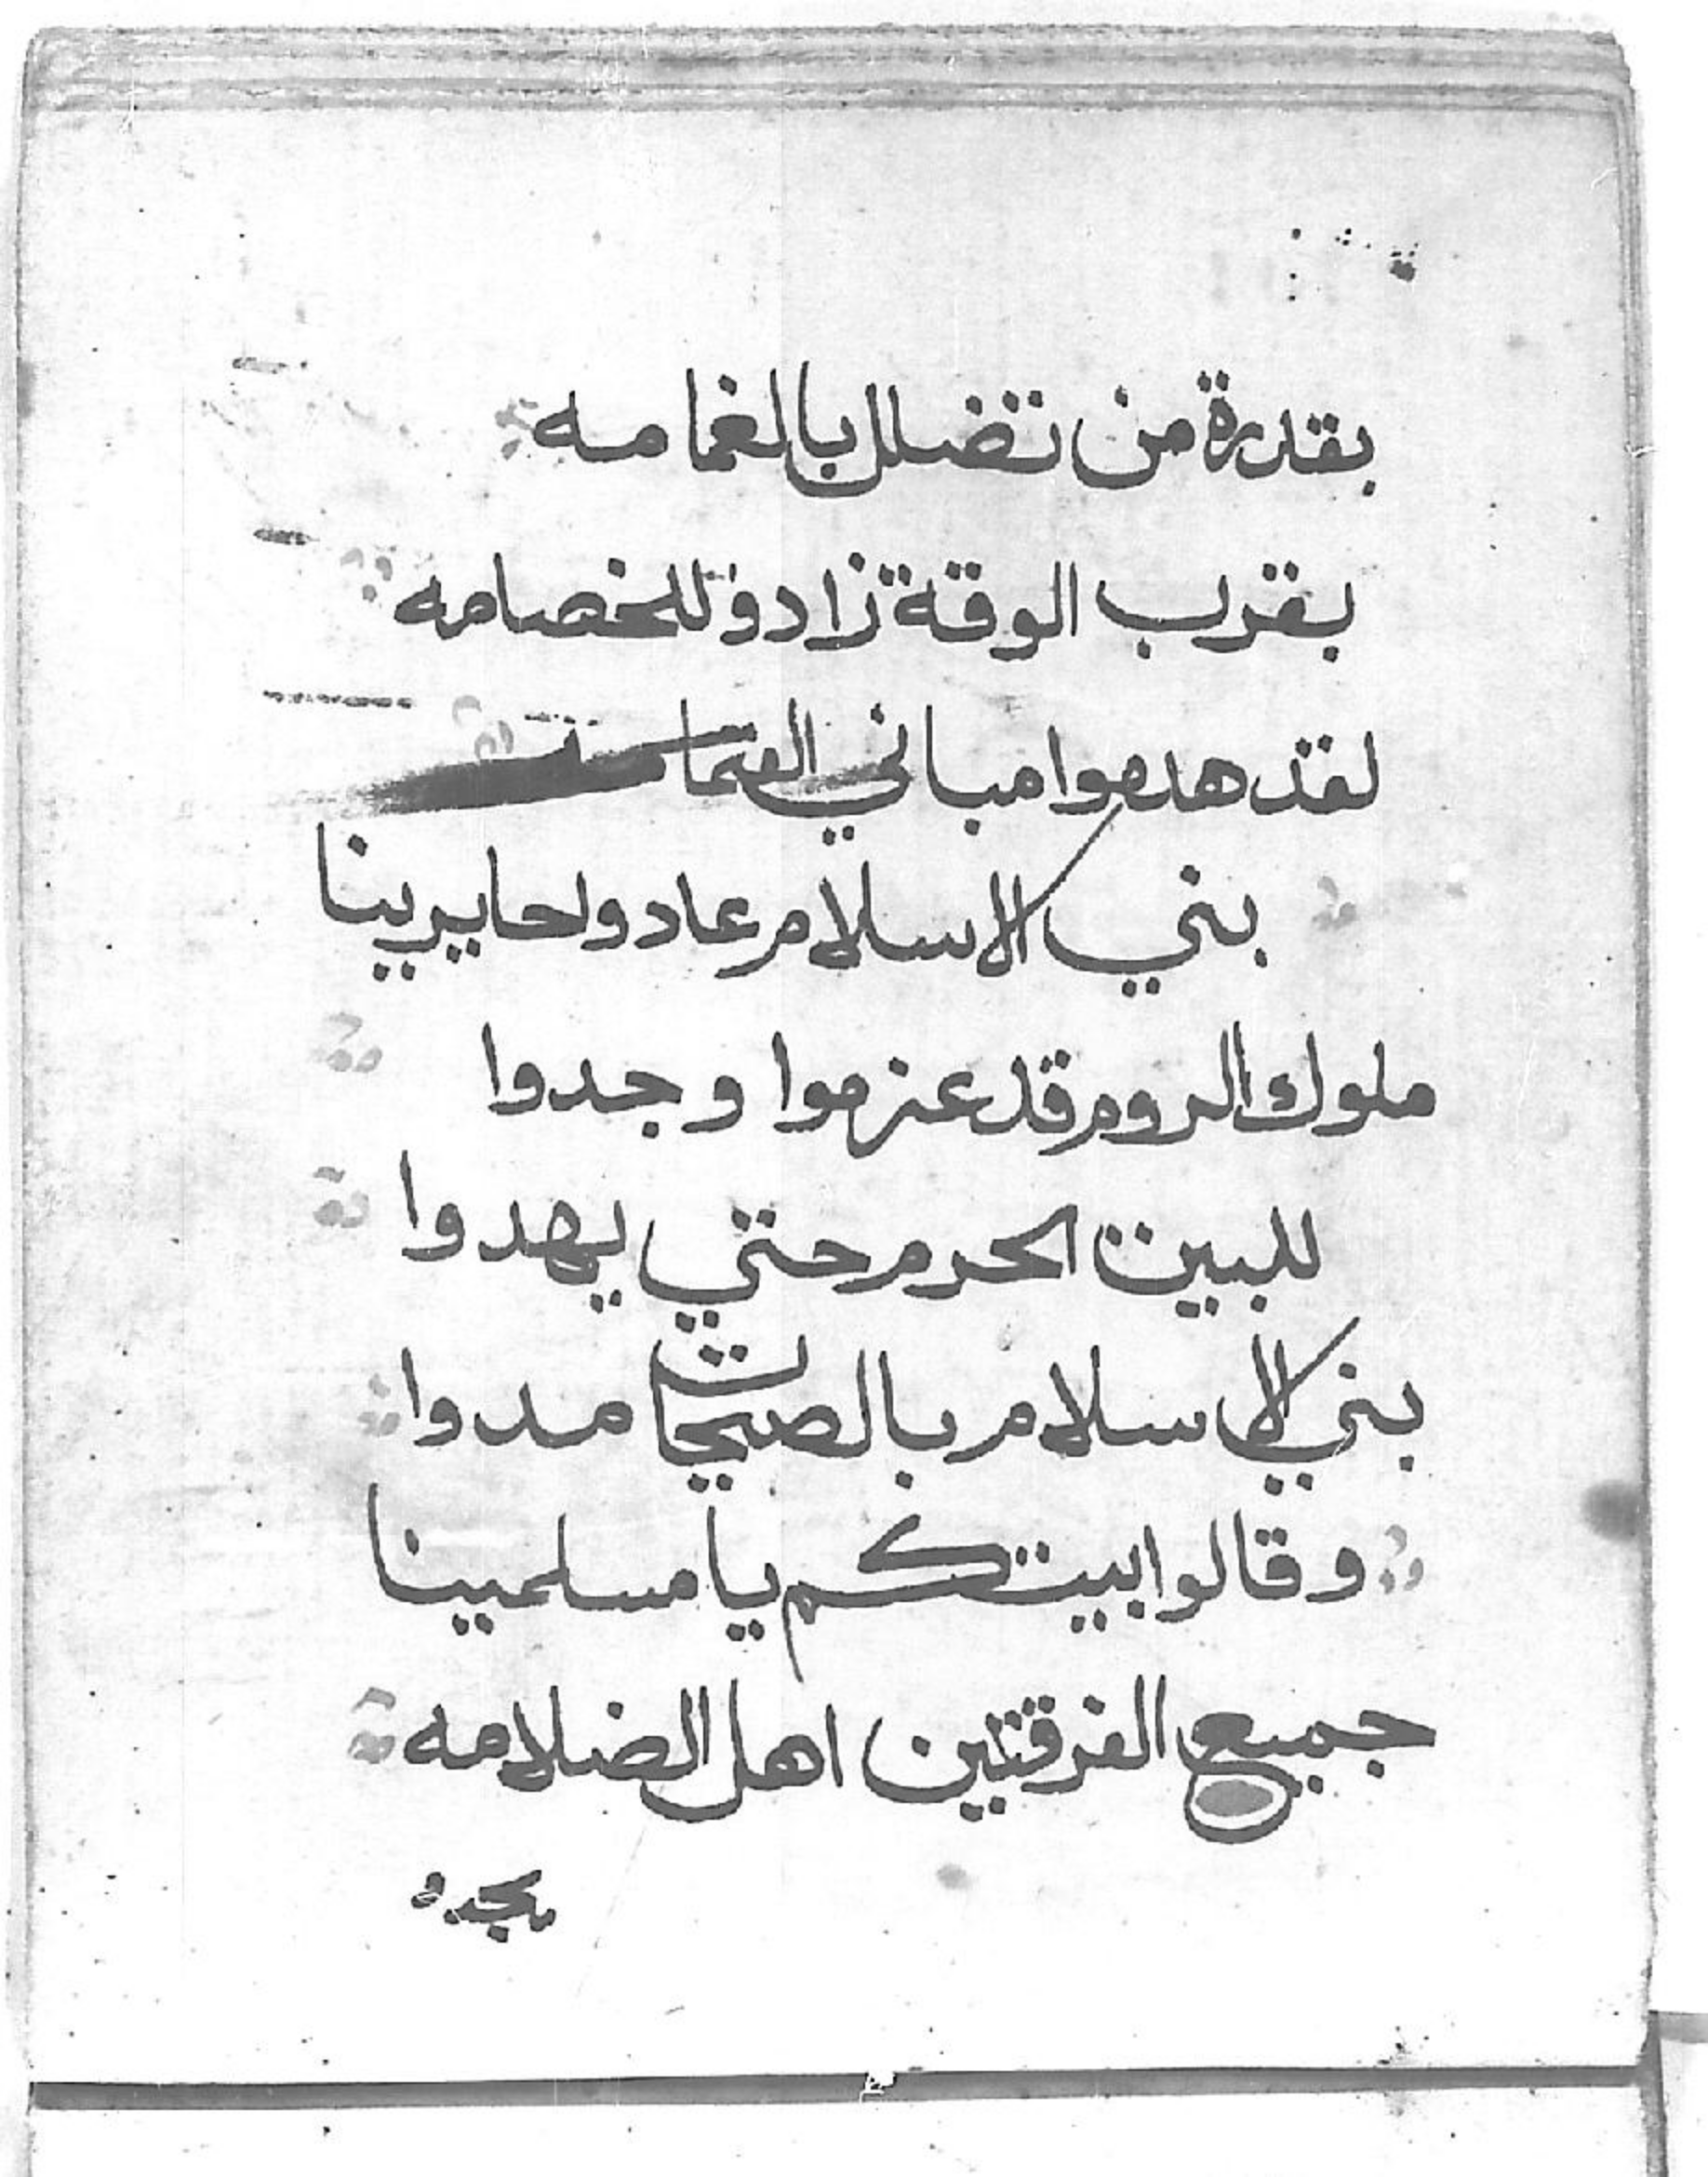 بقدرة من تضلل بالغمامه
بقرب الوقة زادو للخصامه
لقد هدموا مباني
بني الاسلام عادوا حايرينا
ملوك الروم قد عزموا وجدوا
للبيت الحرم حتي يهدوا
بني الاسلام بالصيحات مدوا
وقالوا بيتكم يا مسلمينا
جميع الفرقتين اهل الضلامه